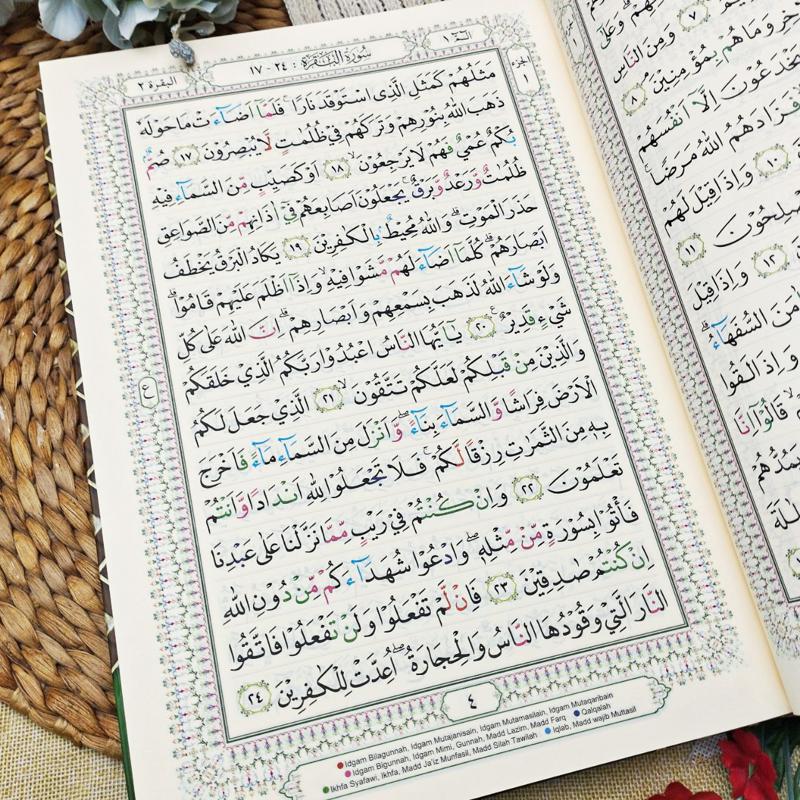 البقرة ٢
سورة البقرة : ٢٤ - ١٧
الم ١
الجزء ١
مَثَلُهُمْ كَمَثَلِ الَّذِى اسْتَوْقَدَ نَارًا ۚ فَلَمَّآ اَضَاۤءَتْ مَا حَوْلَهٗ
ذَهَبَ اللّٰهُ بِنُوْرِهِمْ وَتَرَكَهُمْ فِيْ ظُلُمٰتٍ لَّا يُبْصِرُوْنَ ١٧ صُمٌّ ۢ
بُكْمٌ عُمْيٌ فَهُمْ لَا يَرْجِعُوْنَ ۙ ١٨ اَوْ كَصَيِّبٍ مِّنَ السَّمَاۤءِ فِيْهِ
ظُلُمٰتٌ وَّرَعْدٌ وَّبَرْقٌ ۚ يَجْعَلُوْنَ اَصَابِعَهُمْ فِيْٓ اٰذَانِهِمْ مِّنَ الصَّوَاعِقِ
حَذَرَ الْمَوْتِ ۗ وَاللّٰهُ مُحِيْطٌ ۢ بِالْكٰفِرِيْنَ ١٩ يَكَادُ الْبَرْقُ يَخْطَفُ
اَبْصَارَهُمْ ۗ كُلَّمَآ اَضَاۤءَ لَهُمْ مَّشَوْا فِيْهِ ۙ وَاِذَآ اَظْلَمَ عَلَيْهِمْ قَامُوْا ۗ
وَلَوْ شَاۤءَ اللّٰهُ لَذَهَبَ بِسَمْعِهِمْ وَاَبْصَارِهِمْ ۗ اِنَّ اللّٰهَ عَلٰى كُلِّ
شَيْءٍ قَدِيْرٌ ۚ ٢٠ يٰٓاَيُّهَا النَّاسُ اعْبُدُوْا رَبَّكُمُ الَّذِيْ خَلَقَكُمْ
وَالَّذِيْنَ مِنْ قَبْلِكُمْ لَعَلَّكُمْ تَتَّقُوْنَ ۙ ٢١ الَّذِيْ جَعَلَ لَكُمُ
الْاَرْضَ فِرَاشًا وَّالسَّمَاۤءَ بِنَاۤءً ۖ وَّاَنْزَلَ مِنَ السَّمَاۤءِ مَاۤءً فَاَخْرَجَ
بِهٖ مِنَ الثَّمَرٰتِ رِزْقًا لَّكُمْ ۚ فَلَا تَجْعَلُوْا لِلّٰهِ اَنْدَادًا وَّاَنْتُمْ
تَعْلَمُوْنَ ٢٢ وَاِنْ كُنْتُمْ فِيْ رَيْبٍ مِّمَّا نَزَّلْنَا عَلٰى عَبْدِنَا
فَأْتُوْا بِسُوْرَةٍ مِّنْ مِّثْلِهٖ ۖ وَادْعُوْا شُهَدَاۤءَكُمْ مِّنْ دُوْنِ اللّٰهِ
اِنْ كُنْتُمْ صٰدِقِيْنَ ٢٣ فَاِنْ لَّمْ تَفْعَلُوْا وَلَنْ تَفْعَلُوْا فَاتَّقُوا
النَّارَ الَّتِيْ وَقُوْدُهَا النَّاسُ وَالْحِجَارَةُ ۖ اُعِدَّتْ لِلْكٰفِرِيْنَ ٢٤
ع
٤
Idgam Bilagunnah, Idgam Mutajanisain, Idgam Mutamasilain, Idgam Mutaqaribain
Idgam Bigunnah, Idgam Mimi, Gunnah, Madd Lazim, Madd Farq Qalqalah
Ikhfa Syafawi, Ikhfa, Madd Ja'iz Munfasil, Madd Silah Tawilah Iqlab, Madd wajib Muttasil
٧ وَمِنَ النَّاسِ
وَمَا هُمْ بِمُؤْمِنِيْنَ ٨
يَخْدَعُوْنَ اِلَّآ اَنْفُسَهُمْ
فَزَادَهُمُ اللّٰهُ مَرَضًا
١٠ وَاِذَا قِيْلَ لَهُمْ
١١
١٢ وَاِذَا قِيْلَ
السُّفَهَاۤءُ
وَاِذَا لَقُوا
قَالُوْٓا اِنَّا